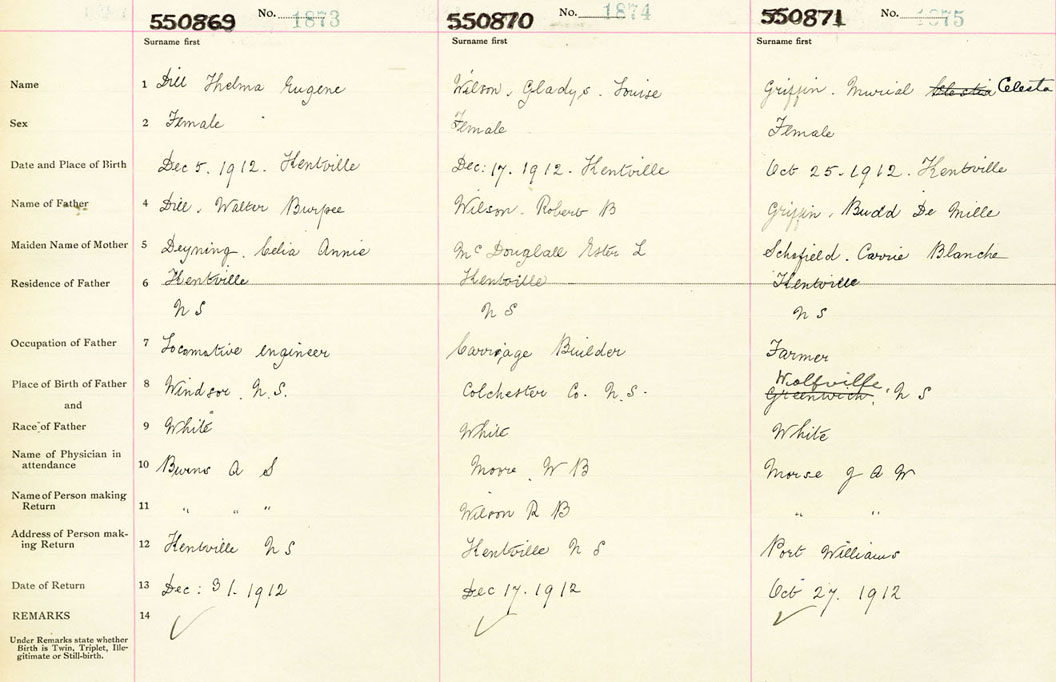 550869 No. 1873 550870 No. 1874 550871 No. 1875
Surname first Surname first Surname first
Name 1 Dill Thelma Eugene Wilson, Gladys. Louise Griffin. Murial Celestia Celesta
Sex 2 Female Female Female
Date and Place of Birth Dec 5. 1912. Kentville Dec: 17. 1912. Kentville Oct 25-1912. Kentville
Name of Father 4 Dill, Walter Burpee Wilson. Robert B Griffin, Budd De Mille
Maiden Name of Mother 5 Deyning. Celia Annie Mc Douglall Ester L Schofield. Carrie Blanche
Residence of Father 6 Kentville Kentville Kentville
N S N S N S
Occupation of Father 7 Locomotive engineer Carriage Builder Farmer
Place of Birth of Father 8 Windsor, N.S. Colchester Co. N.S. Wolfville, Greenwich, N S
and
Race of Father 9 White White White
Name of Physician in
attendance 10 Burns A S Moore, W B Morse J A W
Name of Person making
Return 11 " " " Wilson R B " "
Address of Person mak-
ing Return 12 Kentville N S Kentville N S Port Williams
Date of Return 13 Dec: 31. 1912 Dec 17. 1912 Oct 27. 1912
REMARKS 14
Under Remarks state whether
Birth is Twin, Triplet, Ille-
gitimate or Still-birth.